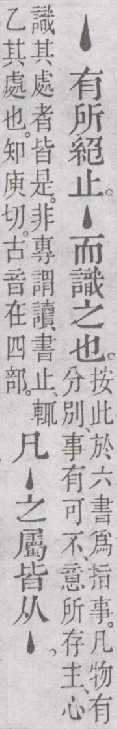 丶有所絕止。丶而識之也。
按此於六書爲指事。凡物有
分別、事有可不、意所存主、心
識其處者皆是。非專謂讀書止、輒
乙其處也。知庾切。古音在四部。
凡丶之屬皆从丶。